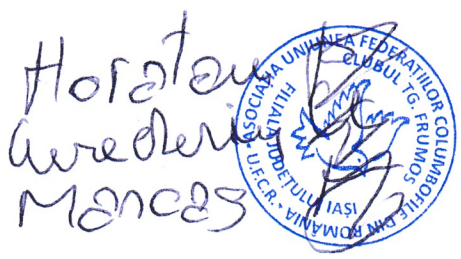 Horatau
Mancas
ASOCIAȚIA UNIUNEA FEDERAȚIILOR COLUMBOFILE DIN ROMÂNIA
U.F.C.R.
CLUBUL TG. FRUMOS
FILIALA JUDEȚULUI IAȘI